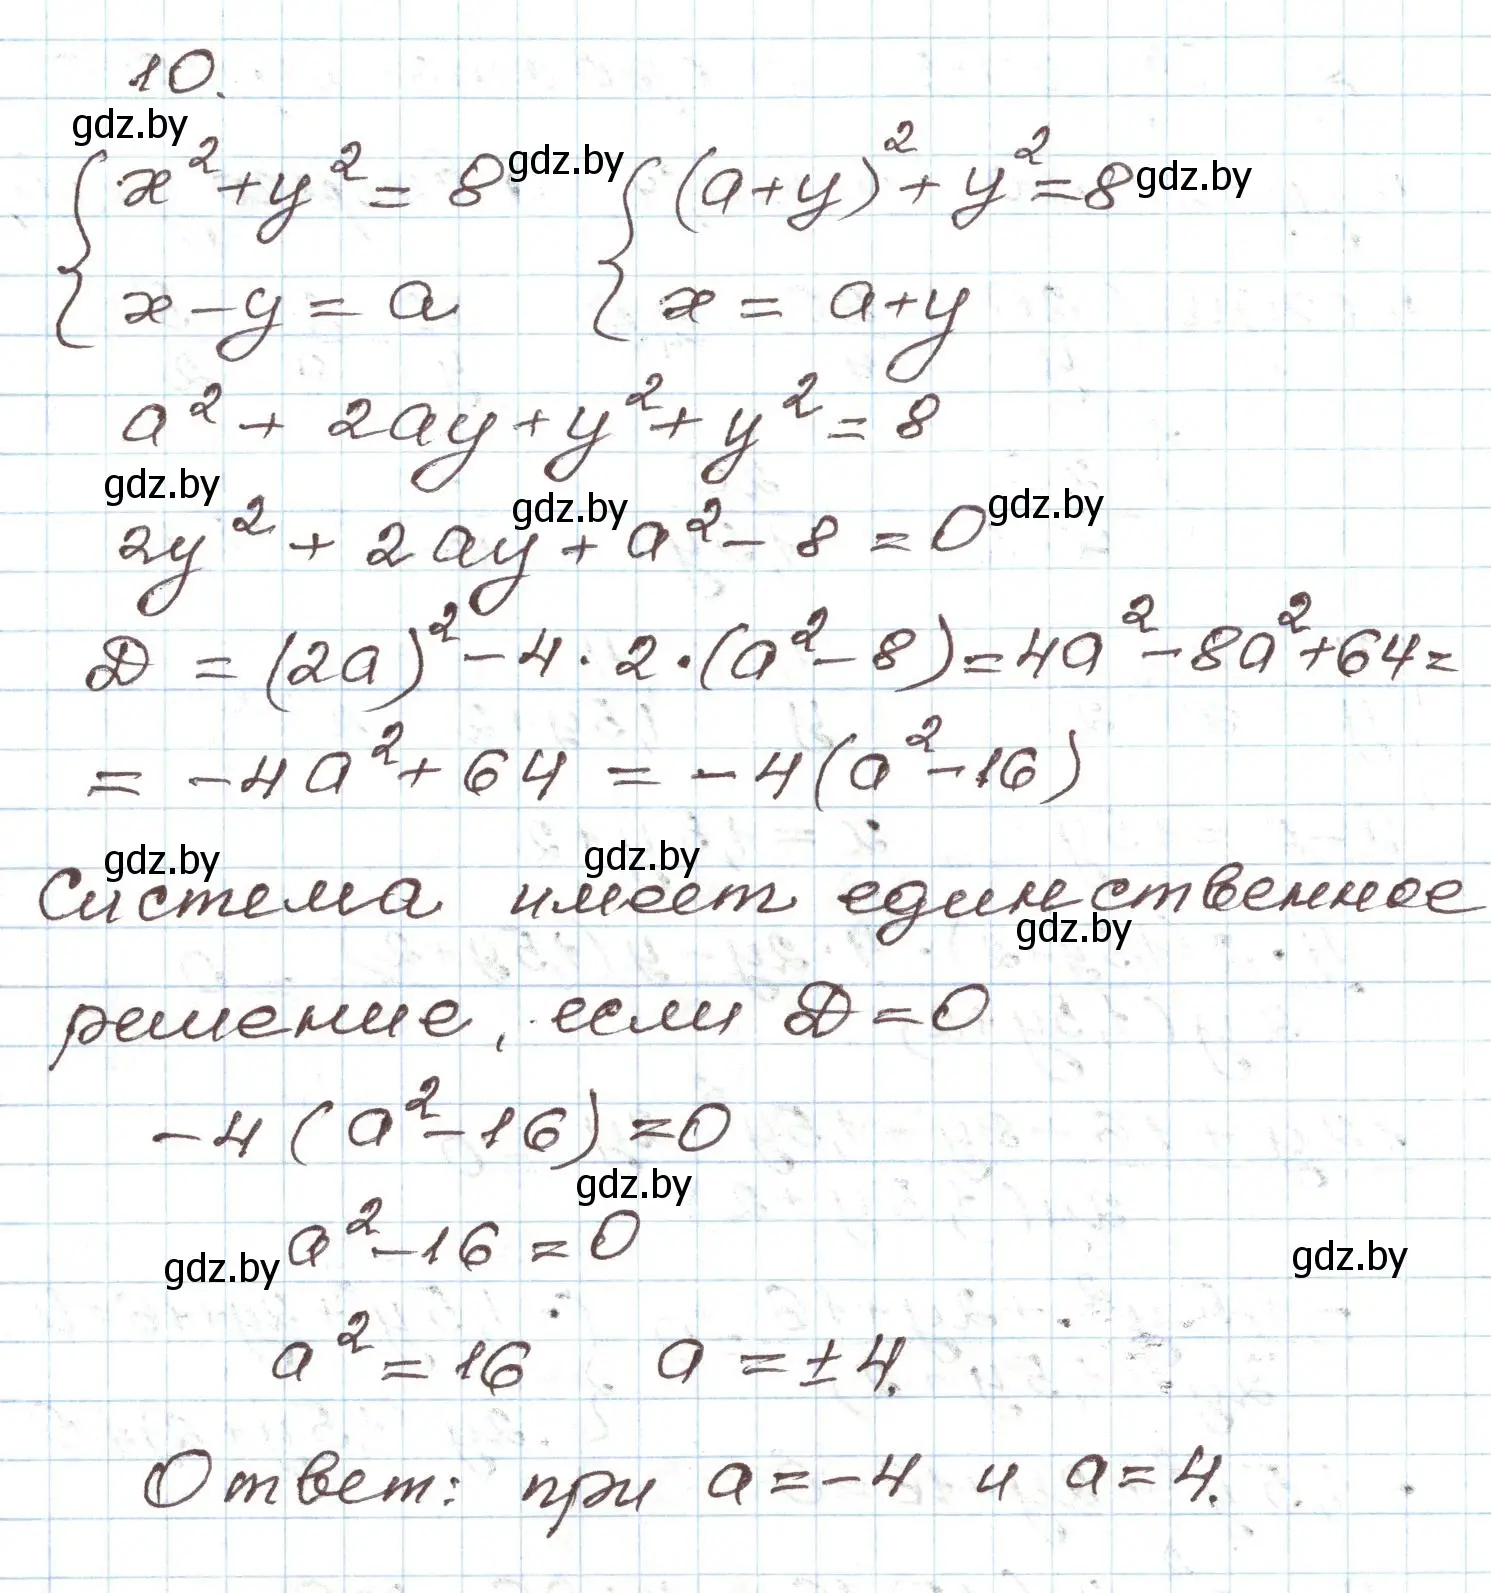 10.
gdz.by
{ x² + y² = 8 gdz.by { (a+y)² + y² = 8 gdz.by
x - y = a x = a+y
a² + 2ay + y² + y² = 8
gdz.by gdz.by gdz.by
2y² + 2ay + a² - 8 = 0
D = (2a)² - 4 · 2 · (a² - 8) = 4a² - 8a² + 64 =
= -4a² + 64 = -4(a² - 16)
gdz.by gdz.by
Система имеет единственное
gdz.by
решение, если D = 0
-4(a² - 16) = 0
gdz.by
a² - 16 = 0
gdz.by gdz.by
a² = 16 a = ±4.
Ответ: при a = -4 и a = 4.